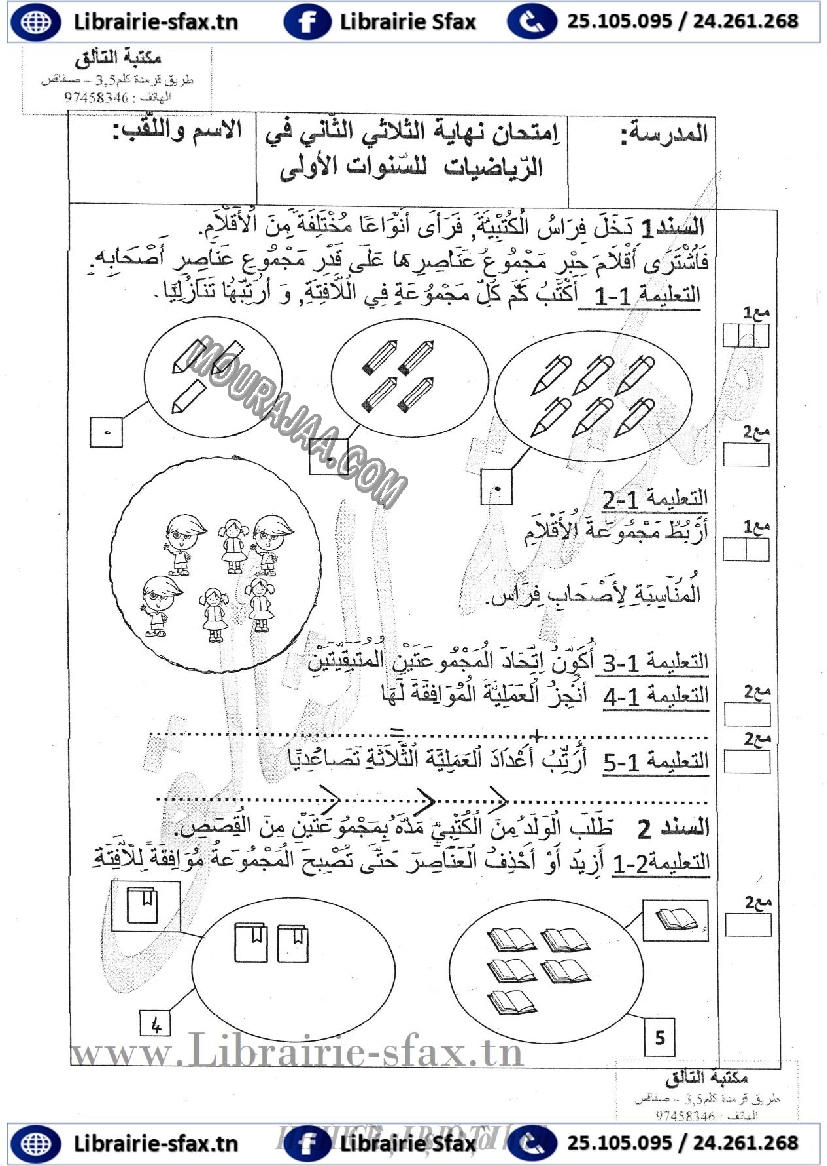 Librairie-sfax.tn Librairie Sfax 25.105.095 / 24.261.268
مكتبة التألق
طريق قرمدة كلم3,5 – صفاقس
الهاتف : 97458346
المدرسة:
إمتحان نهاية الثلاثي الثّاني في
الرّياضيات للسّنوات الأولى
الاسم واللّقب:
السند1 دَخَلَ فِرَاسُ الْكُتْبِيَّةَ, فَرَأَى أَنْوَاعًا مُخْتَلِفَةً مِنَ الْأَقْلَامِ.
فَاشْتَرَى أَقْلَامَ حِبْرٍ مَجْمُوعُ عَنَاصِرِهَا عَلَى قَدْرِ مَجْمُوعِ عَنَاصِرِ أَصْحَابِهِ.
التعليمة 1-1 أَكْتُبُ كَمَّ كُلِّ مَجْمُوعَةٍ فِي اللَّافِتَةِ, وَ أُرَتِّبُهَا تَنَازُلِيًّا.
مع1
مع2
MOURAJAA.COM
التعليمة 1-2
أَرْبُطُ مَجْمُوعَةَ الْأَقْلَامِ
مع1
الْمُنَاسِبَةِ لِأَصْحَابِ فِرَاس.
التعليمة 1-3 أُكَوِّنُ إِتِّحَادَ الْمَجْمُوعَتَيْنِ الْمُتَبَقِّيَتَيْنِ
التعليمة 1-4 أُنْجِزُ الْعَمَلِيَّةَ الْمُوَافِقَةَ لَهَا
مع2
..........+..........=..........
مع2
التعليمة 1-5 أُرَتِّبُ أَعْدَادَ الْعَمَلِيَّةِ الثَّلَاثَةِ تَصَاعُدِيًّا
..........>..........>..........>..........
السند 2 طَلَبَ الْوَلَدُ مِنَ الْكُتْبِيِّ مَدَّهُ بِمَجْمُوعَتَيْنِ مِنَ الْقِصَصِ.
التعليمة2-1 أَزِيدُ أَوْ أَحْذِفُ الْعَنَاصِرَ حَتَّى تُصْبِحَ الْمَجْمُوعَةُ مُوَافِقَةً لِلَّافِتَةِ
مع2
4
5
www.Librairie-sfax.tn
مكتبة التألق
طريق قرمدة كلم3,5 – صفاقس
الهاتف : 97458346
Librairie-sfax.tn Librairie Sfax 25.105.095 / 24.261.268